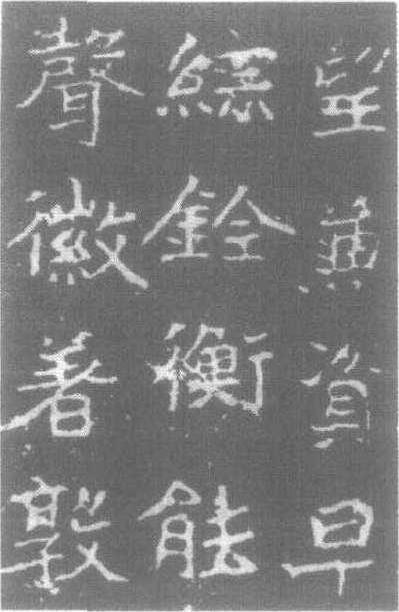 望兼資早
綜銓衡能
聲徽著敦